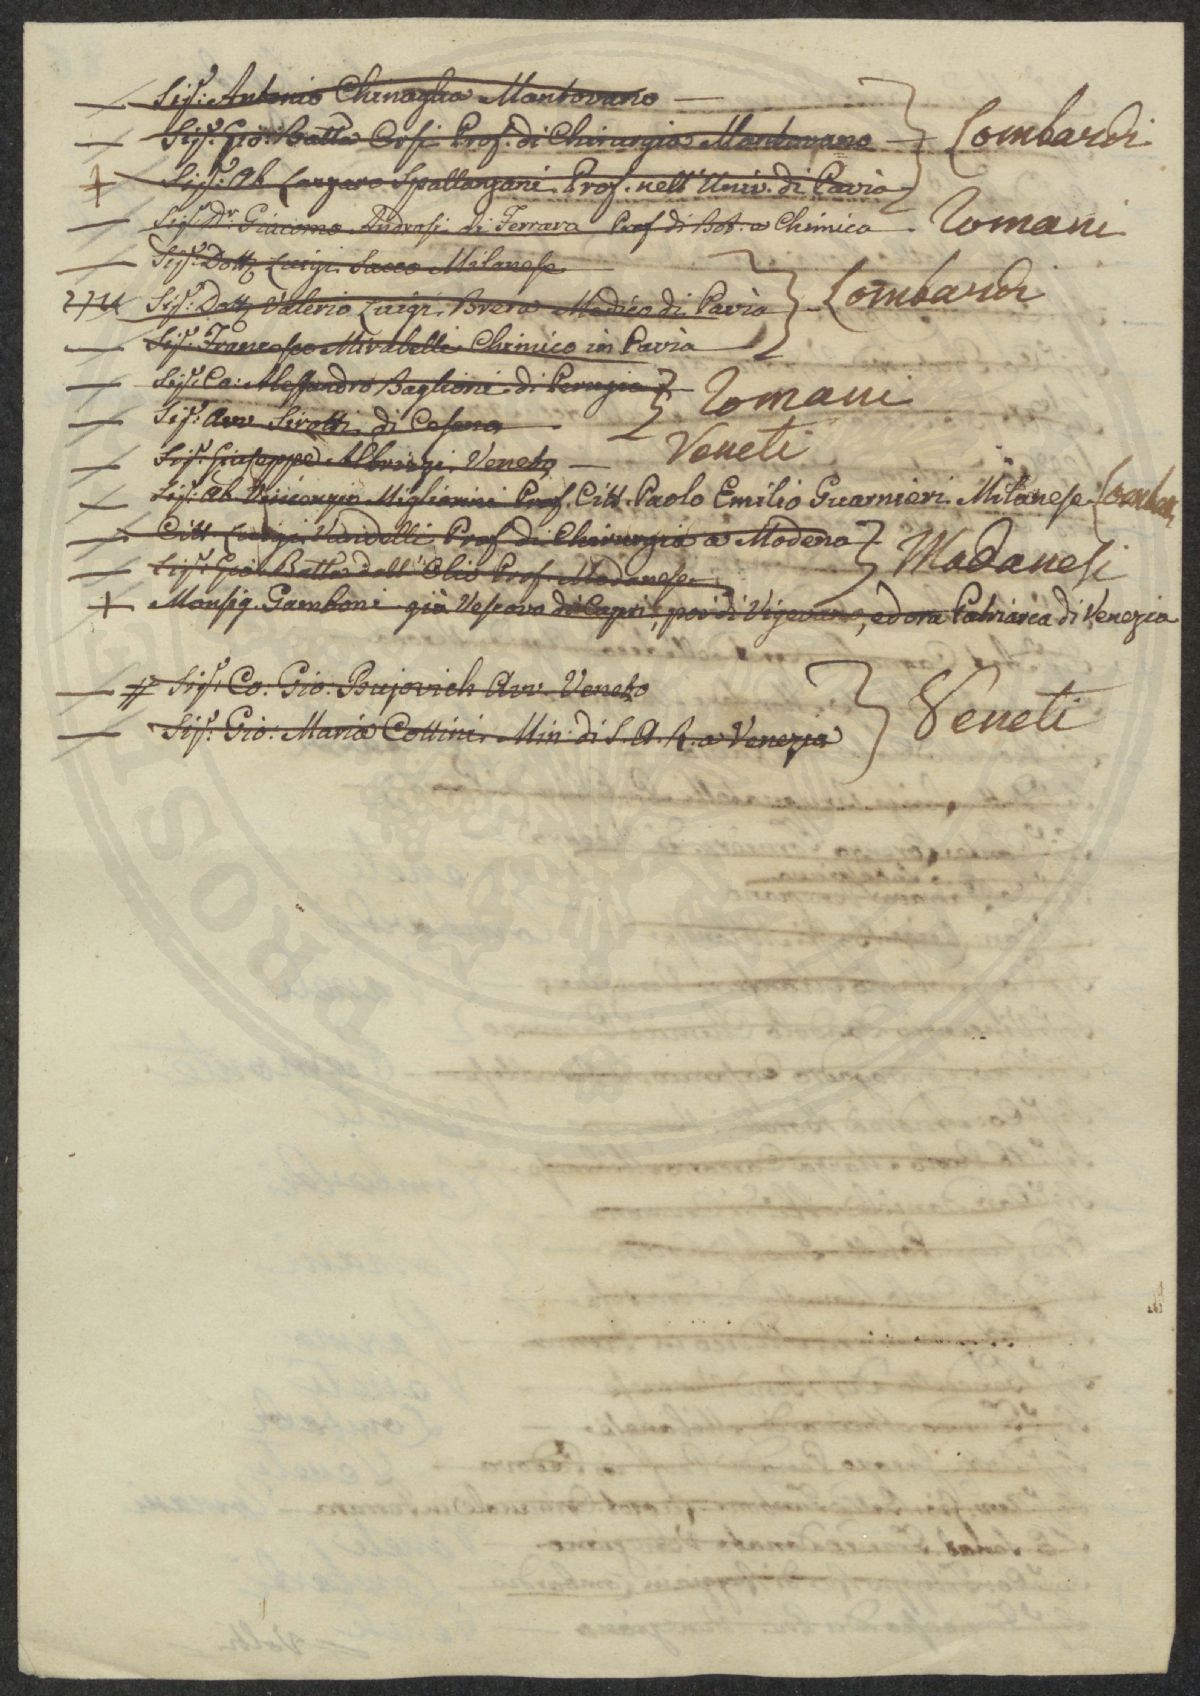 Sig.r Antonio Chinaglia Mantovano —
Sig.r Gio: Batta Orsi Prof. di Chirurgia Mantovano — Lombardi
Sig.r Ab. Lazzaro Spallanzani Prof. nell' Univ. di Pavia
Sig.r D.r Giacomo Andrasi di Ferrara Prof. di Bot. a Chimica Romani
Sig.r Dott. Luigi Sacco Milanese
2711 Sig.r Dott. Valerio Luigi Brera Medico di Pavia Lombardi
Sig.r Francesco Mirabelli Chimico in Pavia
Sig.r Ca: Alessandro Baglioni di Perugia Romani
Sig.r Avv. Sirotti di Cesena
Sig.r Giuseppe Albrizzi Veneto — Veneti
Sig.r Ab. Miglionini Prof. Citt. Paolo Emilio Guarnieri Milanese Lombar
Citt. Luigi Vandelli Prof. di Chirurgia a Modena Modanesi
Sig.r Gio: Batta dall' Olio Prof. Modanese
Monsig. Gamboni già Vescovo di Capri, poi di Vigevano, ed ora Patriarca di Venezia
Sig.r Co. Gio: Bujovich Avv. Veneto Veneti
Sig.r Gio: Maria Cottini Min: di S. A. R. a Venezia